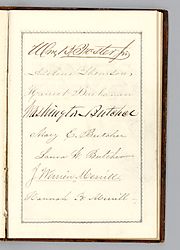 Wm. B. Foster Jr.
Adeline Thornton
Harriet Buchanan
Washington Butcher
Mary C. Butcher
Laura V. Butcher
J. Warren Merrill
Hannah B. Merrill